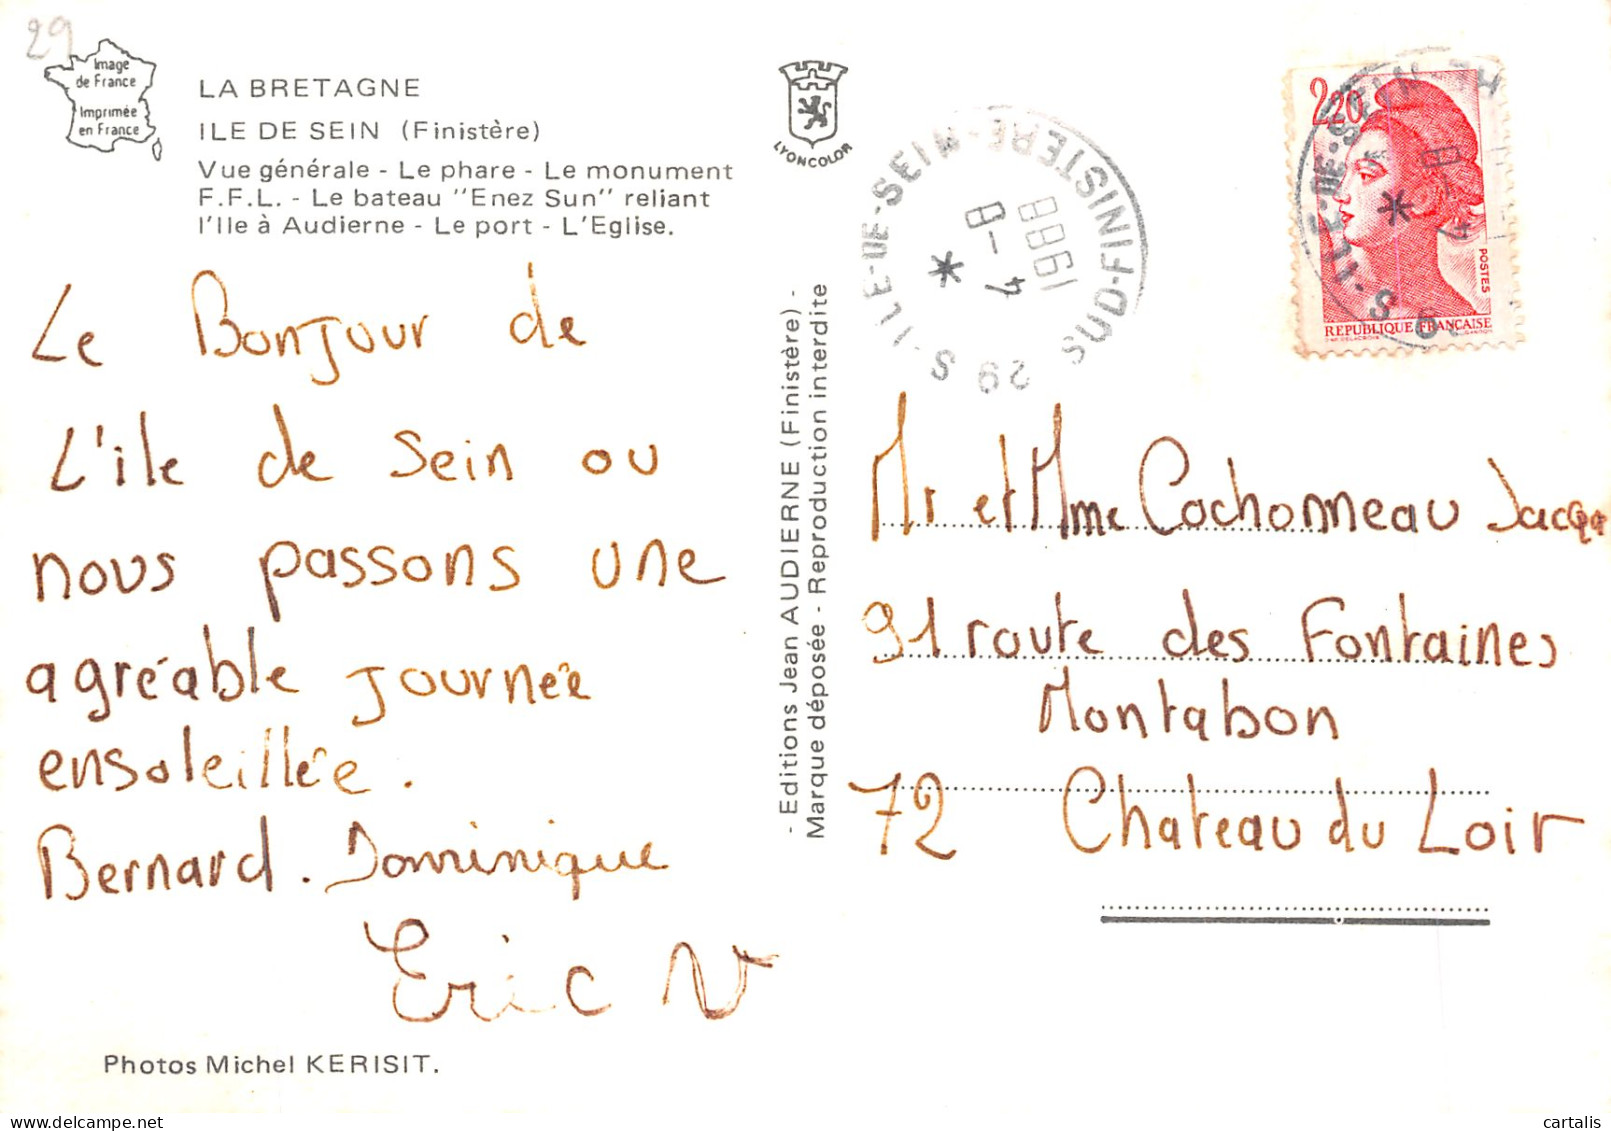 29
Image
de France
Imprimée
en France
LA BRETAGNE
ILE DE SEIN (Finistère)
Vue générale - Le phare - Le monument
F.F.L. - Le bateau "Enez Sun" reliant
l'Ile à Audierne - Le port - L'Eglise.
Le Bonjour de
L'île de Sein ou
nous passons une
agréable journée
ensoleillée.
Bernard. Dominique
Eric V
Photos Michel KERISIT.
LYONCOLOR
- Editions Jean AUDIERNE (Finistère) -
Marque déposée - Reproduction interdite
29 S. ILE-DE-SEIN
SUD-FINISTERE
4 - 8
1988
*
2,20
POSTES
REPUBLIQUE FRANÇAISE
Mr et Mme Cochonneau Jacques
91 route des Fontaines
Montabon
72 Chateau du Loir
cartalis